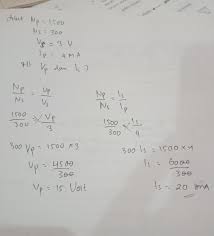 Np = 1500
Ns = 300
Vs = 3 V
Ip = 4 mA
Vp dan Is ?
Np/Ns = Vp/Vs
1500/300 × Vp/3
300 Vp = 1500 × 3
Vp = 4500/300
Vp = 15 Volt
Np/Ns = Is/Ip
1500/300 × Is/4
300 Is = 1500 × 4
Is = 6000/300
Is = 20 mA